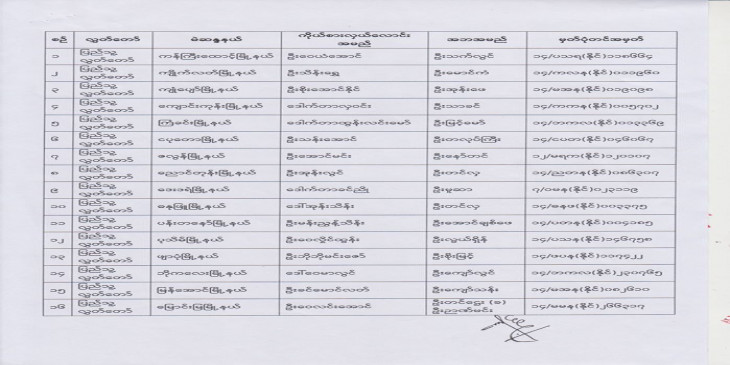 စဉ် လွှတ်တော် မဲဆန္ဒနယ် ကိုယ်စားလှယ်လောင်း အမည် အဘအမည် မှတ်ပုံတင်အမှတ်
၁ ပြည်သူ့ လွှတ်တော် ကန်ကြီးထောင့်မြို့နယ် ဦးဝေယံအောင် ဦးသက်လွင် ၁၄/ပသရ(နိုင်)၁၁၈၆၆၄
၂ ပြည်သူ့ လွှတ်တော် ကျိုက်လတ်မြို့နယ် ဦးသိန်းရွှေ ဦးမောင်ကံ ၁၄/ကလန(နိုင်)၀၁၁၉၆၀
၃ ပြည်သူ့ လွှတ်တော် ကျုံပျော်မြို့နယ် ဦးစိုးအောင်နိုင် ဦးအုန်းဖေ ၁၄/မအန(နိုင်)၀၁၉၀၉၈
၄ ပြည်သူ့ လွှတ်တော် ကျောင်းကုန်းမြို့နယ် ဒေါက်တာလှဝင်း ဦးသာခင် ၁၄/ကကန(နိုင်)၀၀၅၇၀၂
၅ ပြည်သူ့ လွှတ်တော် ကြံခင်းမြို့နယ် ဒေါက်တာထွန်းလင်းမော် ဦးမြင့်မော် ၁၄/ကကလ(နိုင်)၀၁၃၃၆၉
၆ ပြည်သူ့ လွှတ်တော် ငပုတောမြို့နယ် ဦးသန်းအောင် ဦးတလုပ်ကြီး ၁၄/ငပတ(နိုင်)၀၄၆၀၆၇
၇ ပြည်သူ့ လွှတ်တော် ဇလွန်မြို့နယ် ဦးအောင်မင်း ဦးနော်တင် ၁၂/မရက(နိုင်)၁၂၀၁၀၇
၈ ပြည်သူ့ လွှတ်တော် ညောင်တုန်းမြို့နယ် ဦးအုန်းလွင် ဦးတင်လှ ၁၄/ညတန(နိုင်)၀၈၆၃၀၇
၉ ပြည်သူ့ လွှတ်တော် ဒေးဒရဲမြို့နယ် ဒေါက်တာခင်ညို ဦးမူဆာ ၇/ဝမန(နိုင်)၀၂၃၁၁၉
၁၀ ပြည်သူ့ လွှတ်တော် ဓနုဖြူမြို့နယ် ဒေါ်အုန်းသိန်း ဦးတင်လှ ၁၄/ဓနဖ(နိုင်)၀၀၃၃၇၅
၁၁ ပြည်သူ့ လွှတ်တော် ပန်းတနော်မြို့နယ် ဦးမန်းညွန့်သိန်း ဦးအောင်ချစ်ဖေ ၁၄/ပတန(နိုင်)၀၀၄၁၈၅
၁၂ ပြည်သူ့ လွှတ်တော် ပုသိမ်မြို့နယ် ဦးလှိုင်ထွန်း ဦးလွယ်ရှိန် ၁၄/ပသန(နိုင်)၁၄၆၇၅၈
၁၃ ပြည်သူ့ လွှတ်တော် ဖျာပုံမြို့နယ် ဦးဘိုဘိုမင်းဇော် ဦးစိုးမြင့် ၁၄/ဖပန(နိုင်)၁၁၇၄၂၂
၁၄ ပြည်သူ့ လွှတ်တော် ဘိုကလေးမြို့နယ် ဒေါ်ဝေမာလွင် ဦးကျော်လွင် ၁၄/ဘကလ(နိုင်)၂၃၀၇၆၅
၁၅ ပြည်သူ့ လွှတ်တော် မြန်အောင်မြို့နယ် ဦးခင်မောင်လတ် ဦးကျော်သန်း ၁၄/မအန(နိုင်)၀၈၂၆၁၀
၁၆ ပြည်သူ့ လွှတ်တော် မြောင်းမြမြို့နယ် ဦးဝေလင်းအောင် ဦးတင်ငွေး (ခ) ဦးဉာဏ်မင်း ၁၄/မမန(နိုင်)၂၆၆၃၁၇